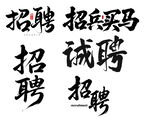 招聘
招兵买马
诚聘
招聘
招聘